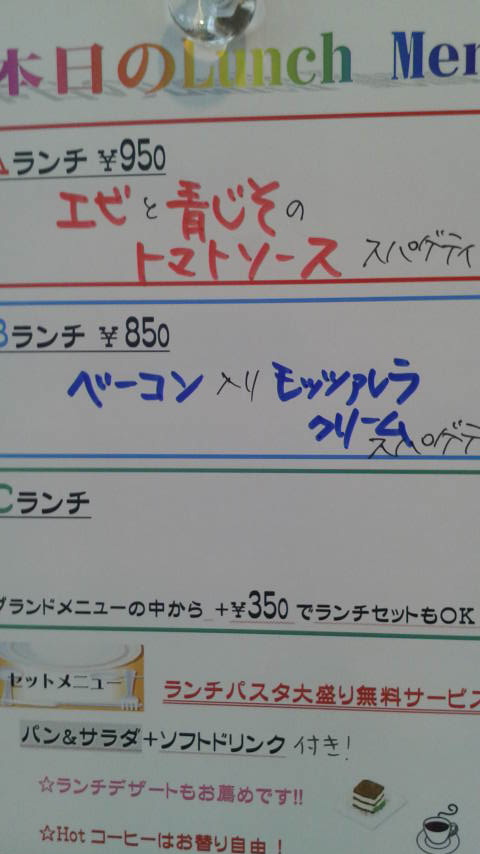 本日のLunch Men
Aランチ ¥950
エビと青じその
トマトソース スパゲティ
Bランチ ¥850
ベーコン入りモッツァレラ
クリーム
スパゲテ
Cランチ
グランドメニューの中から +¥350 でランチセットもOK
セットメニュー
ランチパスタ大盛り無料サービス
パン&サラダ+ソフトドリンク 付き!
☆ランチデザートもお薦めです!!
☆Hotコーヒーはお替り自由!